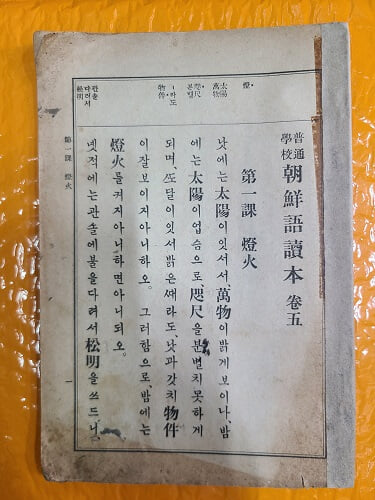 普通學校 朝鮮語讀本 卷五
第一課 燈火
낫에는太陽이잇서서萬物이밝게보이나、밤
에는太陽이업슴으로咫尺을분별치못하게
되며、또달이잇서밝은때라도、낫과갓치物件
이잘보이지아니하오。그러함으로、밤에는
燈火를켜지아니하면아니되오。
녯적에는관솔에불을다려서松明을쓰드니、
燈・
太陽
萬物
咫尺
분별
ー라도
物件・
관솔
다려서
松明
第一課 燈火
一